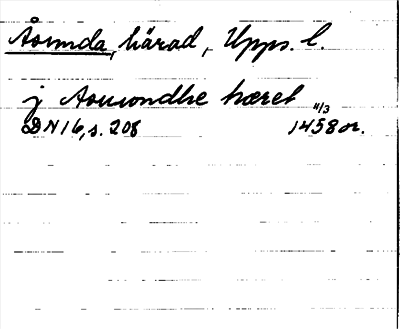 Åsunda, härad, Upps. l.
j Asuondhe hæret
DN 16, s. 208 11/3 1458 or.